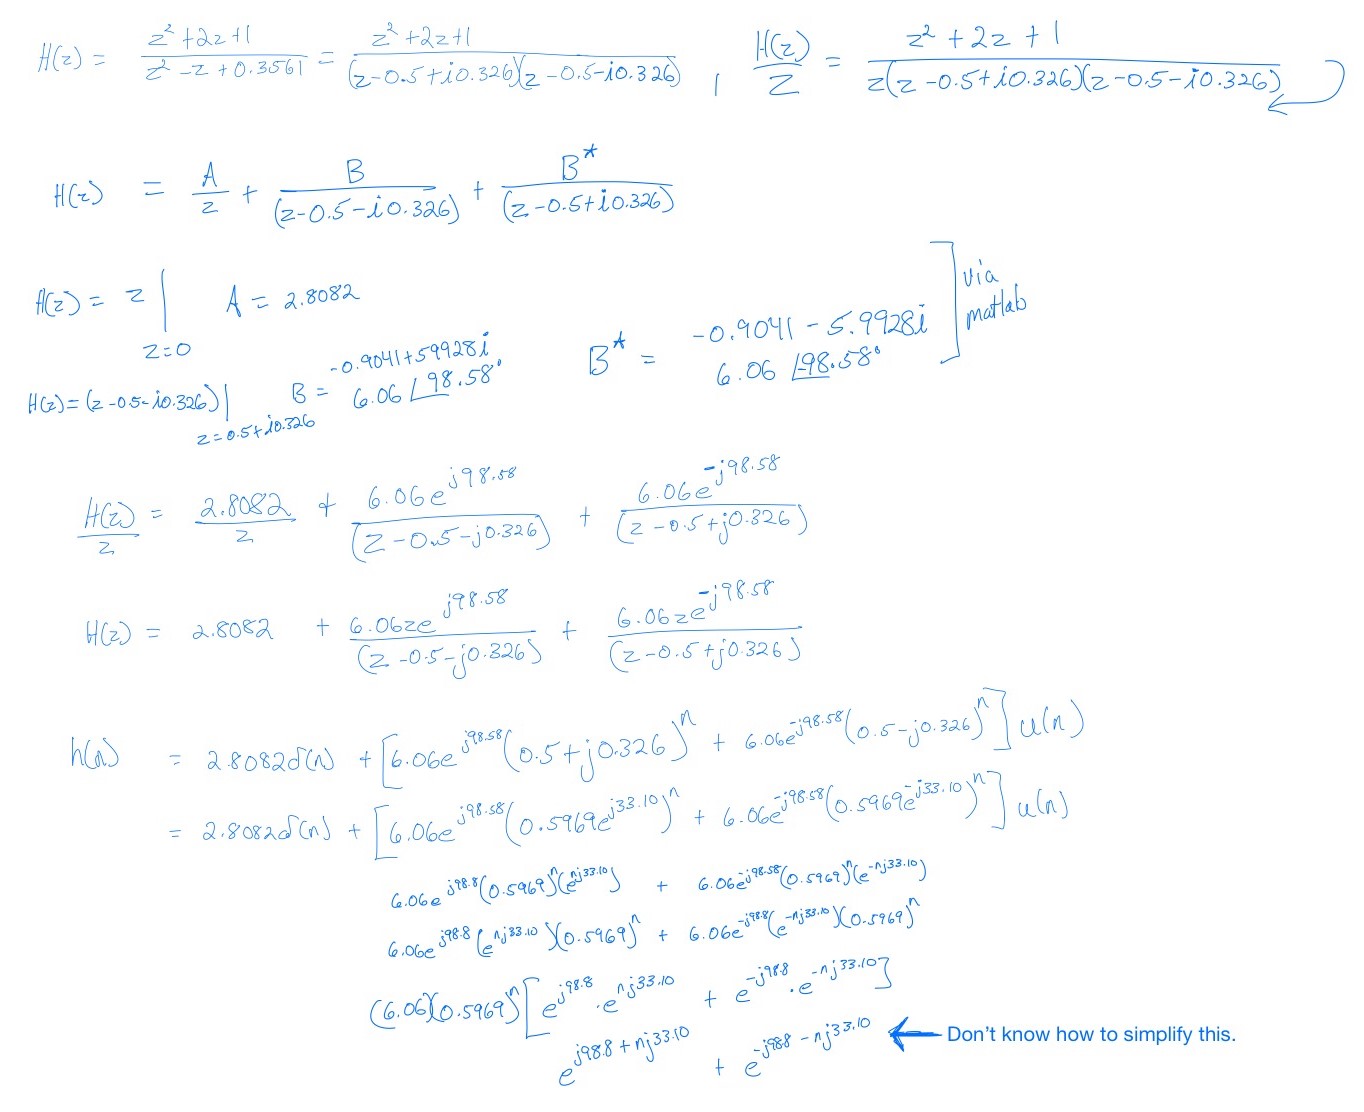 H(z) = (z² + 2z + 1)/(z² - z + 0.3561) = (z² + 2z + 1)/((z - 0.5 + i0.326)(z - 0.5 - i0.326)) , H(z)/z = (z² + 2z + 1)/(z(z - 0.5 + i0.326)(z - 0.5 - i0.326))
H(z) = A/z + B/(z - 0.5 - i0.326) + B*/(z - 0.5 + i0.326)
H(z) = z | z=0 A = 2.8082
H(z) = (z - 0.5 - i0.326) | z = 0.5 + i0.326 B = -0.9041 + 59928i 6.06 ∠98.58° B* = -0.9041 - 5.9928i 6.06 ∠-98.58° ] via matlab
H(z)/z = 2.8082/z + 6.06e^(j98.58)/(z - 0.5 - j0.326) + 6.06e^(-j98.58)/(z - 0.5 + j0.326)
H(z) = 2.8082 + 6.06ze^(j98.58)/(z - 0.5 - j0.326) + 6.06ze^(-j98.58)/(z - 0.5 + j0.326)
h(n) = 2.8082δ(n) + [6.06e^(j98.58)(0.5 + j0.326)^n + 6.06e^(-j98.58)(0.5 - j0.326)^n] u(n)
= 2.8082δ(n) + [6.06e^(j98.58)(0.5969e^(j33.10))^n + 6.06e^(-j98.58)(0.5969e^(-j33.10))^n] u(n)
6.06e^(j98.8)(0.5969)^n(e^(nj33.10)) + 6.06e^(-j98.58)(0.5969)^n(e^(-nj33.10))
6.06e^(j98.8)(e^(nj33.10))(0.5969)^n + 6.06e^(-j98.8)(e^(-nj33.10))(0.5969)^n
(6.06)(0.5969)^n [e^(j98.8) · e^(nj33.10) + e^(-j98.8) · e^(-nj33.10)]
e^(j98.8 + nj33.10) + e^(-j98.8 - nj33.10) ← Don't know how to simplify this.